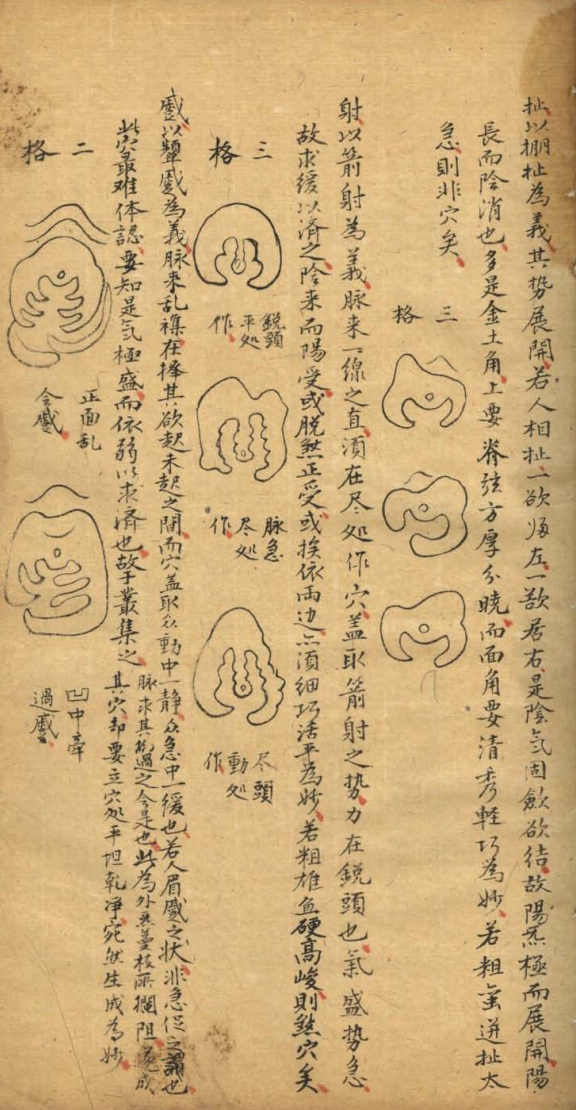 扯以掤扯為義其势展開若人相扯一欲归左一欲居右是陰氣固歛欲结故陽炁極而展開陽
長而陰消也多是金土角上要脊弦方厚分曉而面角要清秀軽巧為妙若粗蛮迸扯太
急則非穴矣
三格
射以箭射為義脉来一線之直湏在尽処作穴盖取箭射之势力在鋭頭也氣盛势急
故求緩以済之陰来而陽受或脱煞正受或挨依両边亦湏細巧活平為妙若粗雄魚硬高峻則煞穴矣
三格
鋭頭
平処
作
脉急
尽処
作
尽頭
動処
作
蹙以颦蹙為義脉来乱襍在擇其欲起未起之閗而穴盖取众動中一静众急中一緩也若人眉蹙之状非急促之謂也
此穴最难体認要知是氕極盛而依弱以求済也故于叢集之
脉求其乾過之今是也此為外来蔓枝所攔阻
其穴却要立穴処平坦乾净宛然生成為妙
二格
正面乱
会蹙
凹中牵
過蹙